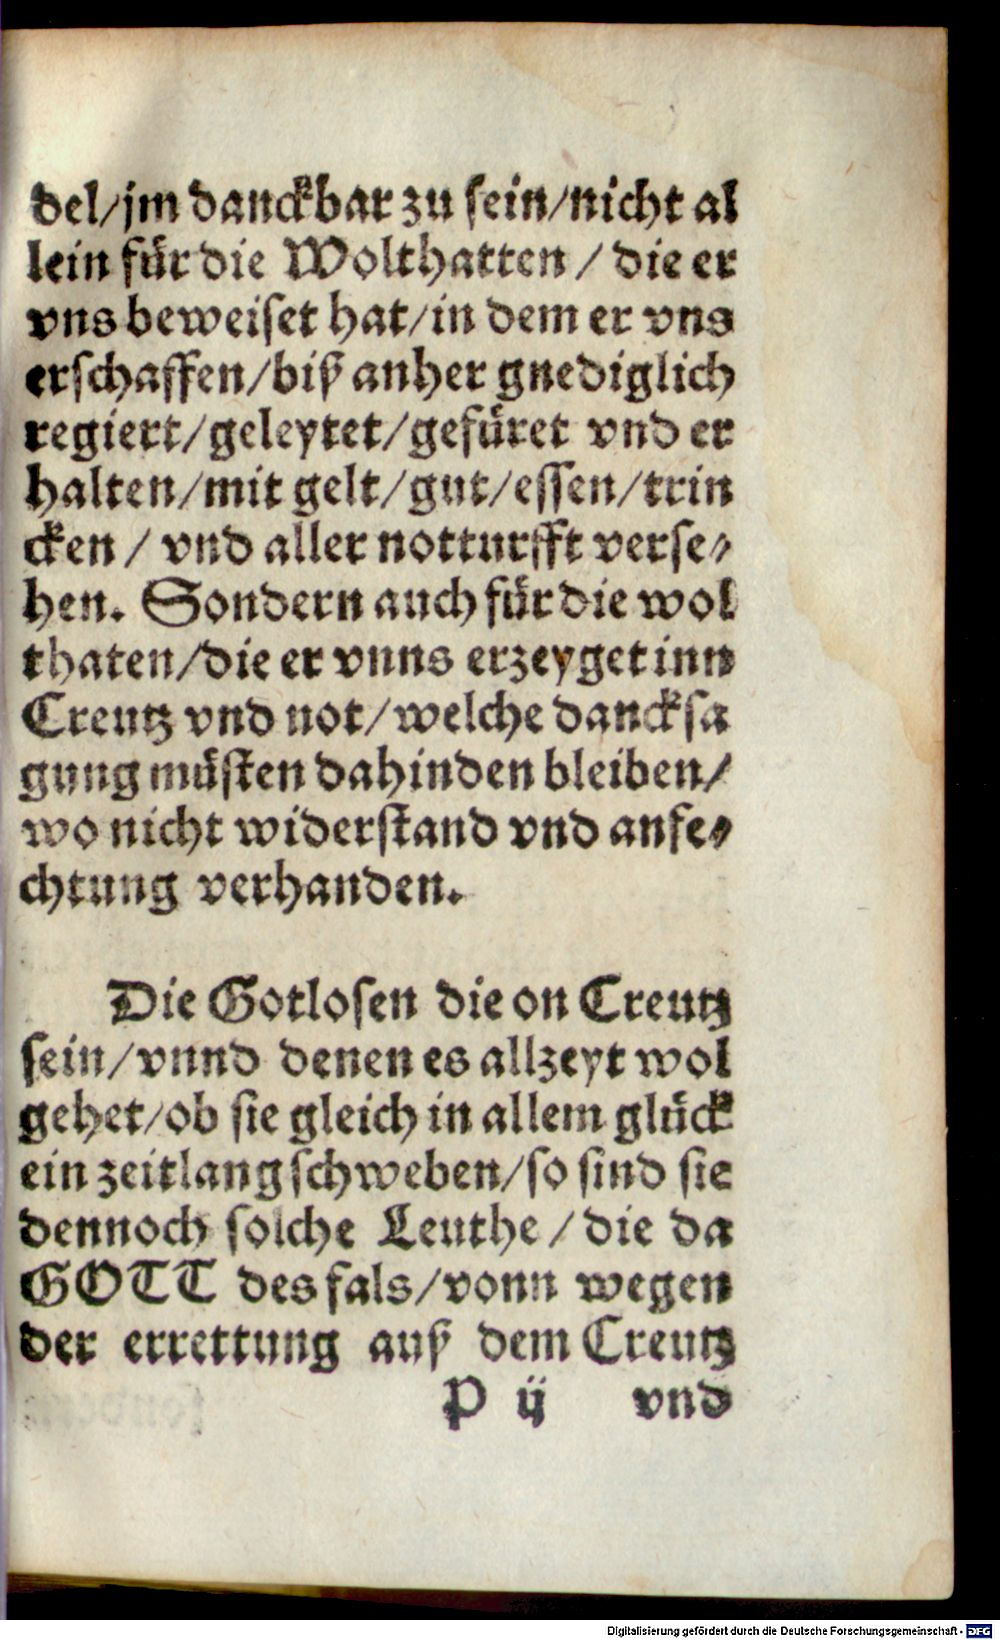 del/jm danckbar zu sein/nicht al
lein für die Wolthatten / die er
vns beweiset hat/in dem er vns
erschaffen/biß anher gnediglich
regiert/geleytet/gefüret vnd er
halten/mit gelt/gut/essen/trin
cken / vnd aller notturfft verse⸗
hen. Sondern auch für die wol
thaten/die er vnns erzeyget inn
Creutz vnd not/welche dancksa
gung müsten dahinden bleiben/
wo nicht widerstand vnd anfe⸗
chtung verhanden.
Die Gotlosen die on Creutz
sein/vnnd denen es allzeyt wol
gehet/ob sie gleich in allem glück
ein zeitlang schweben/so sind sie
dennoch solche Leuthe / die da
GOTT des fals/vonn wegen
der errettung auß dem Creutz
P ij vnd
Digitalisierung gefördert durch die Deutsche Forschungsgemeinschaft - DFG